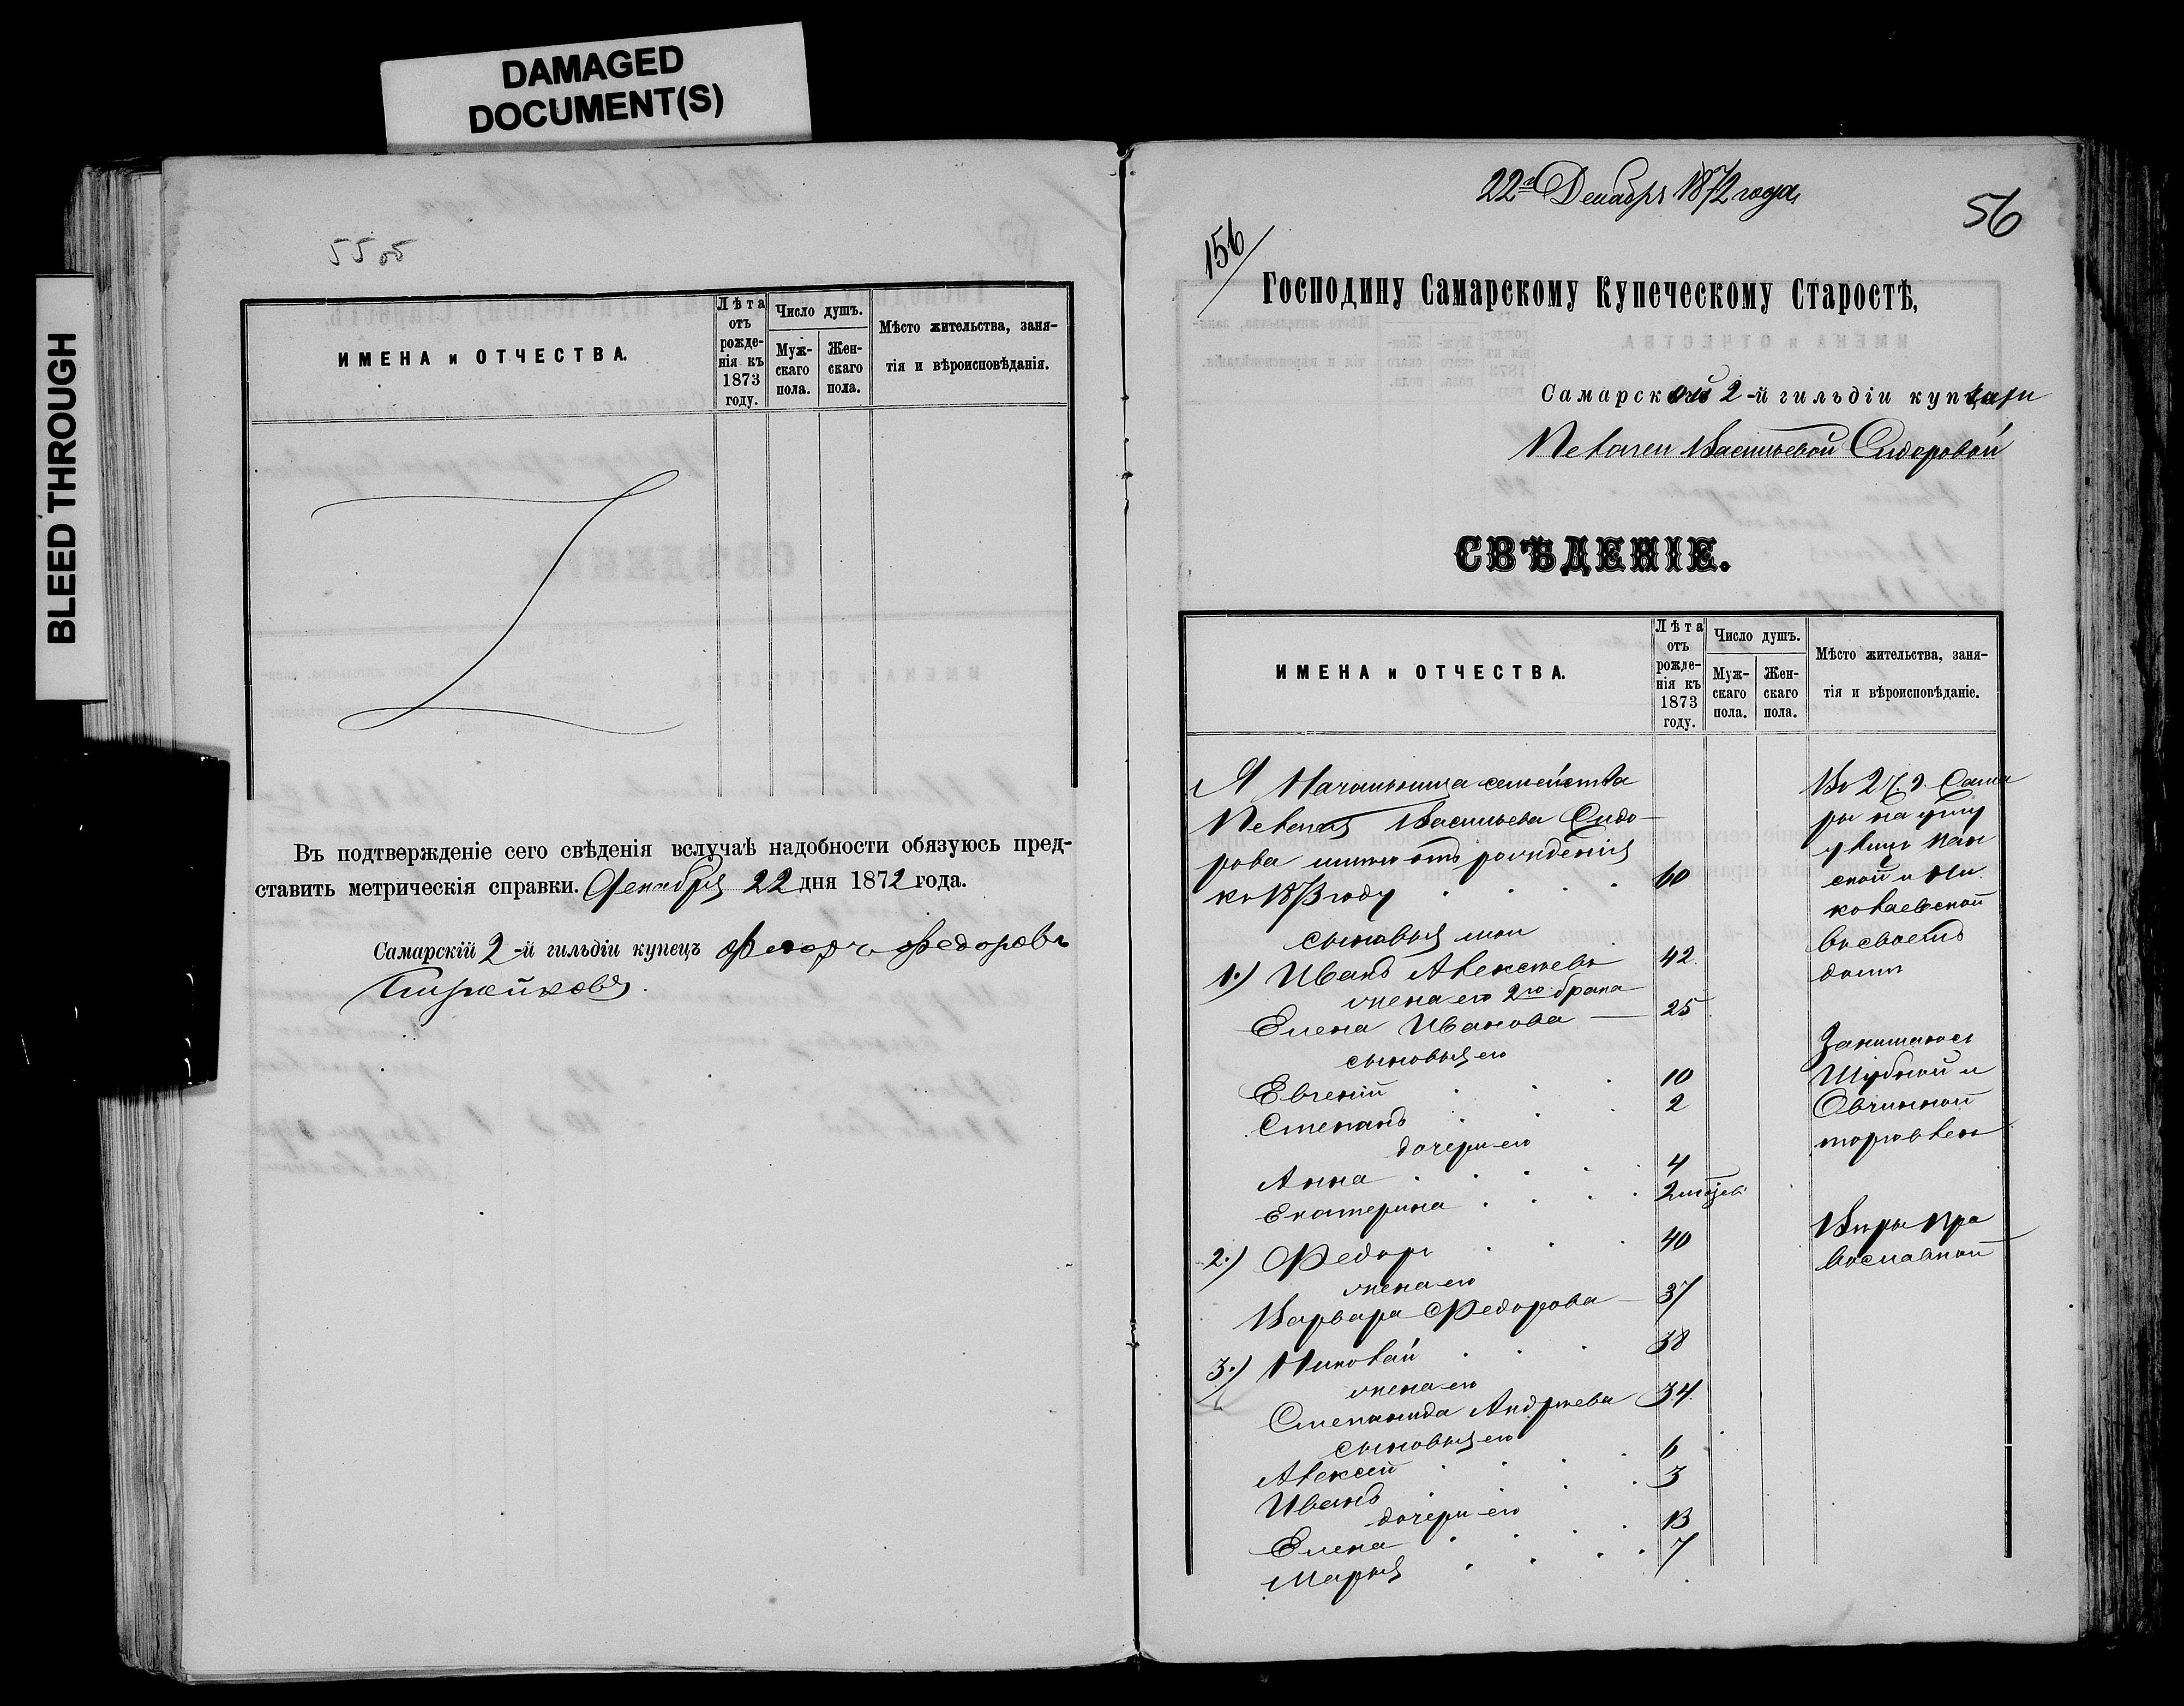 DAMAGED
DOCUMENT(S)
BLEED THROUGH
55 об
ИМЕНА и ОТЧЕСТВА.
Лѣта отъ рожденія къ 1873 году.
Число душъ.
Мужскаго пола.
Женскаго пола.
Мѣсто жительства, занятія и вѣроисповѣданія.
Въ подтвержденіе сего свѣденія вслучаѣ надобности обязуюсь пред-
ставить метрическія справки. Декабря 22 дня 1872 года.
Самарскій 2-й гильдіи купецъ Федоръ Федоровъ
22го Декабря 1872 года
56
156
Господину Самарскому Купеческому Старостѣ,
Самарской 2-й гильдіи купчихи
Пелагеи Васильевой Сидоровой
СВѢДЕНІЕ.
ИМЕНА и ОТЧЕСТВА.
Лѣта отъ рожденія къ 1873 году.
Число душъ.
Мужскаго пола.
Женскаго пола.
Мѣсто жительства, занятія и вѣроисповѣданіе.
Я Начальница семейства
Пелагея Васильева Сидо-
рова имею отъ рожденія
къ 1873 году 60
сыновья мои
1.) Иванъ Алексѣевъ 42
жена его 2го брака
Елена Иванова 25
сыновья его
Евгеній 10
Степанъ 2
дочери его
Анна 4
Екатерина 2 месяцев
2.) Федоръ 40
жена его
Варвара Федорова 37
3.) Николай 38
жена его
Степанида Андреева 34
сыновья его
Алексей 6
Иванъ 3
дочери его
Елена 13
Марья 7
Во 2 Ч. г. Сама
ры на углу
улицъ
ской и Ни
колаевской
въ своемъ
доме
Занимаюсь
Шубной и
Овчинной
торговлею
Веры Пра
вославной